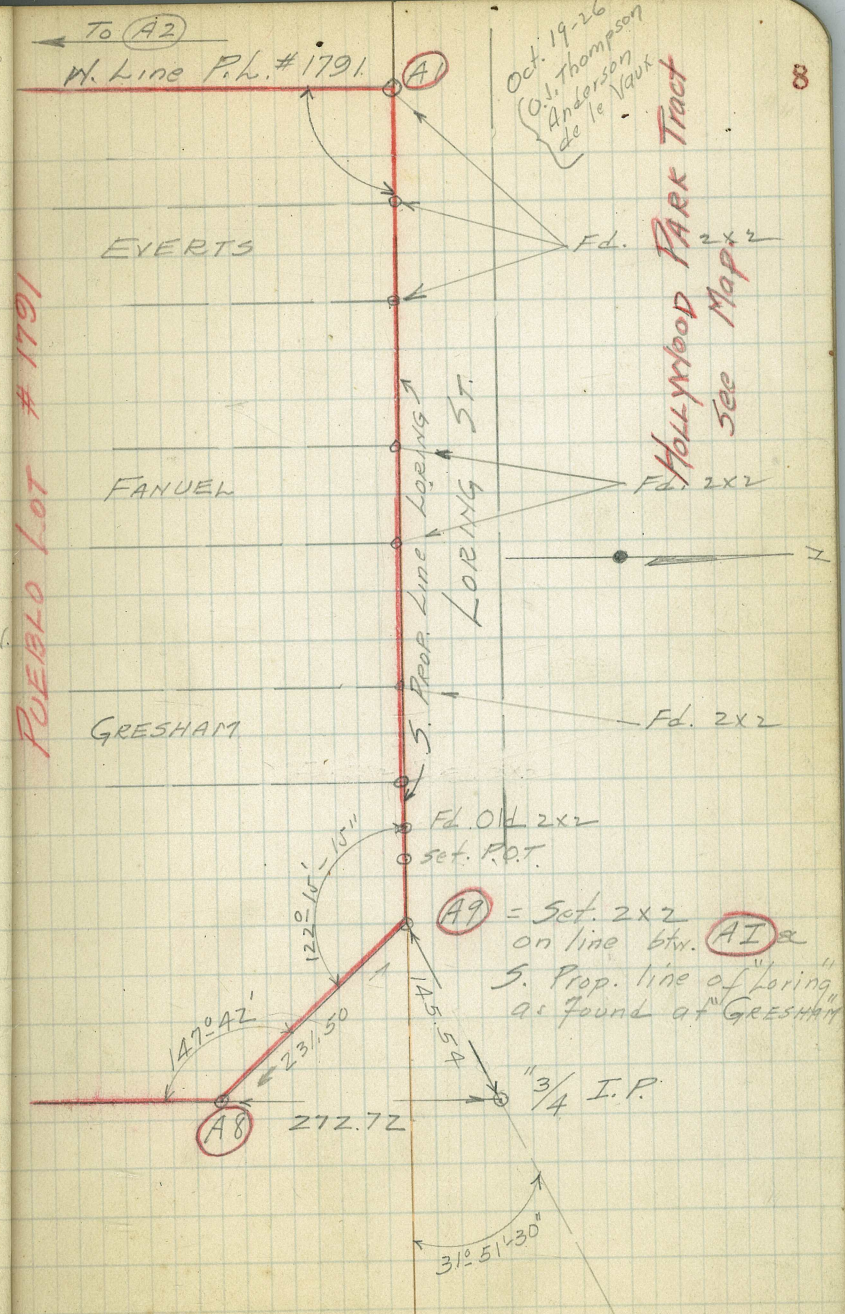 To A2
W. Line P.L. #1791
A1
Oct. 19-26
O.J. Thompson
Anderson
de le Vaux
8
HOLLYWOOD PARK Tract
See Map.
EVERTS
Fd. 2x2
PUEBLO LOT # 1791
S. PROP. LINE LORING
LORING ST.
FANUEL
Fd. 2x2
GRESHAM
Fd. 2x2
Fd. Old 2x2
set. P.O.T.
122°-15'-15"
A9 = Set. 2x2
on line btw. A1 &
S. Prop. line of "Loring"
as found at "GRESHAM"
147°42'
231.50
145.54
"3/4 I.P.
A8
272.72
31°-51'-30"